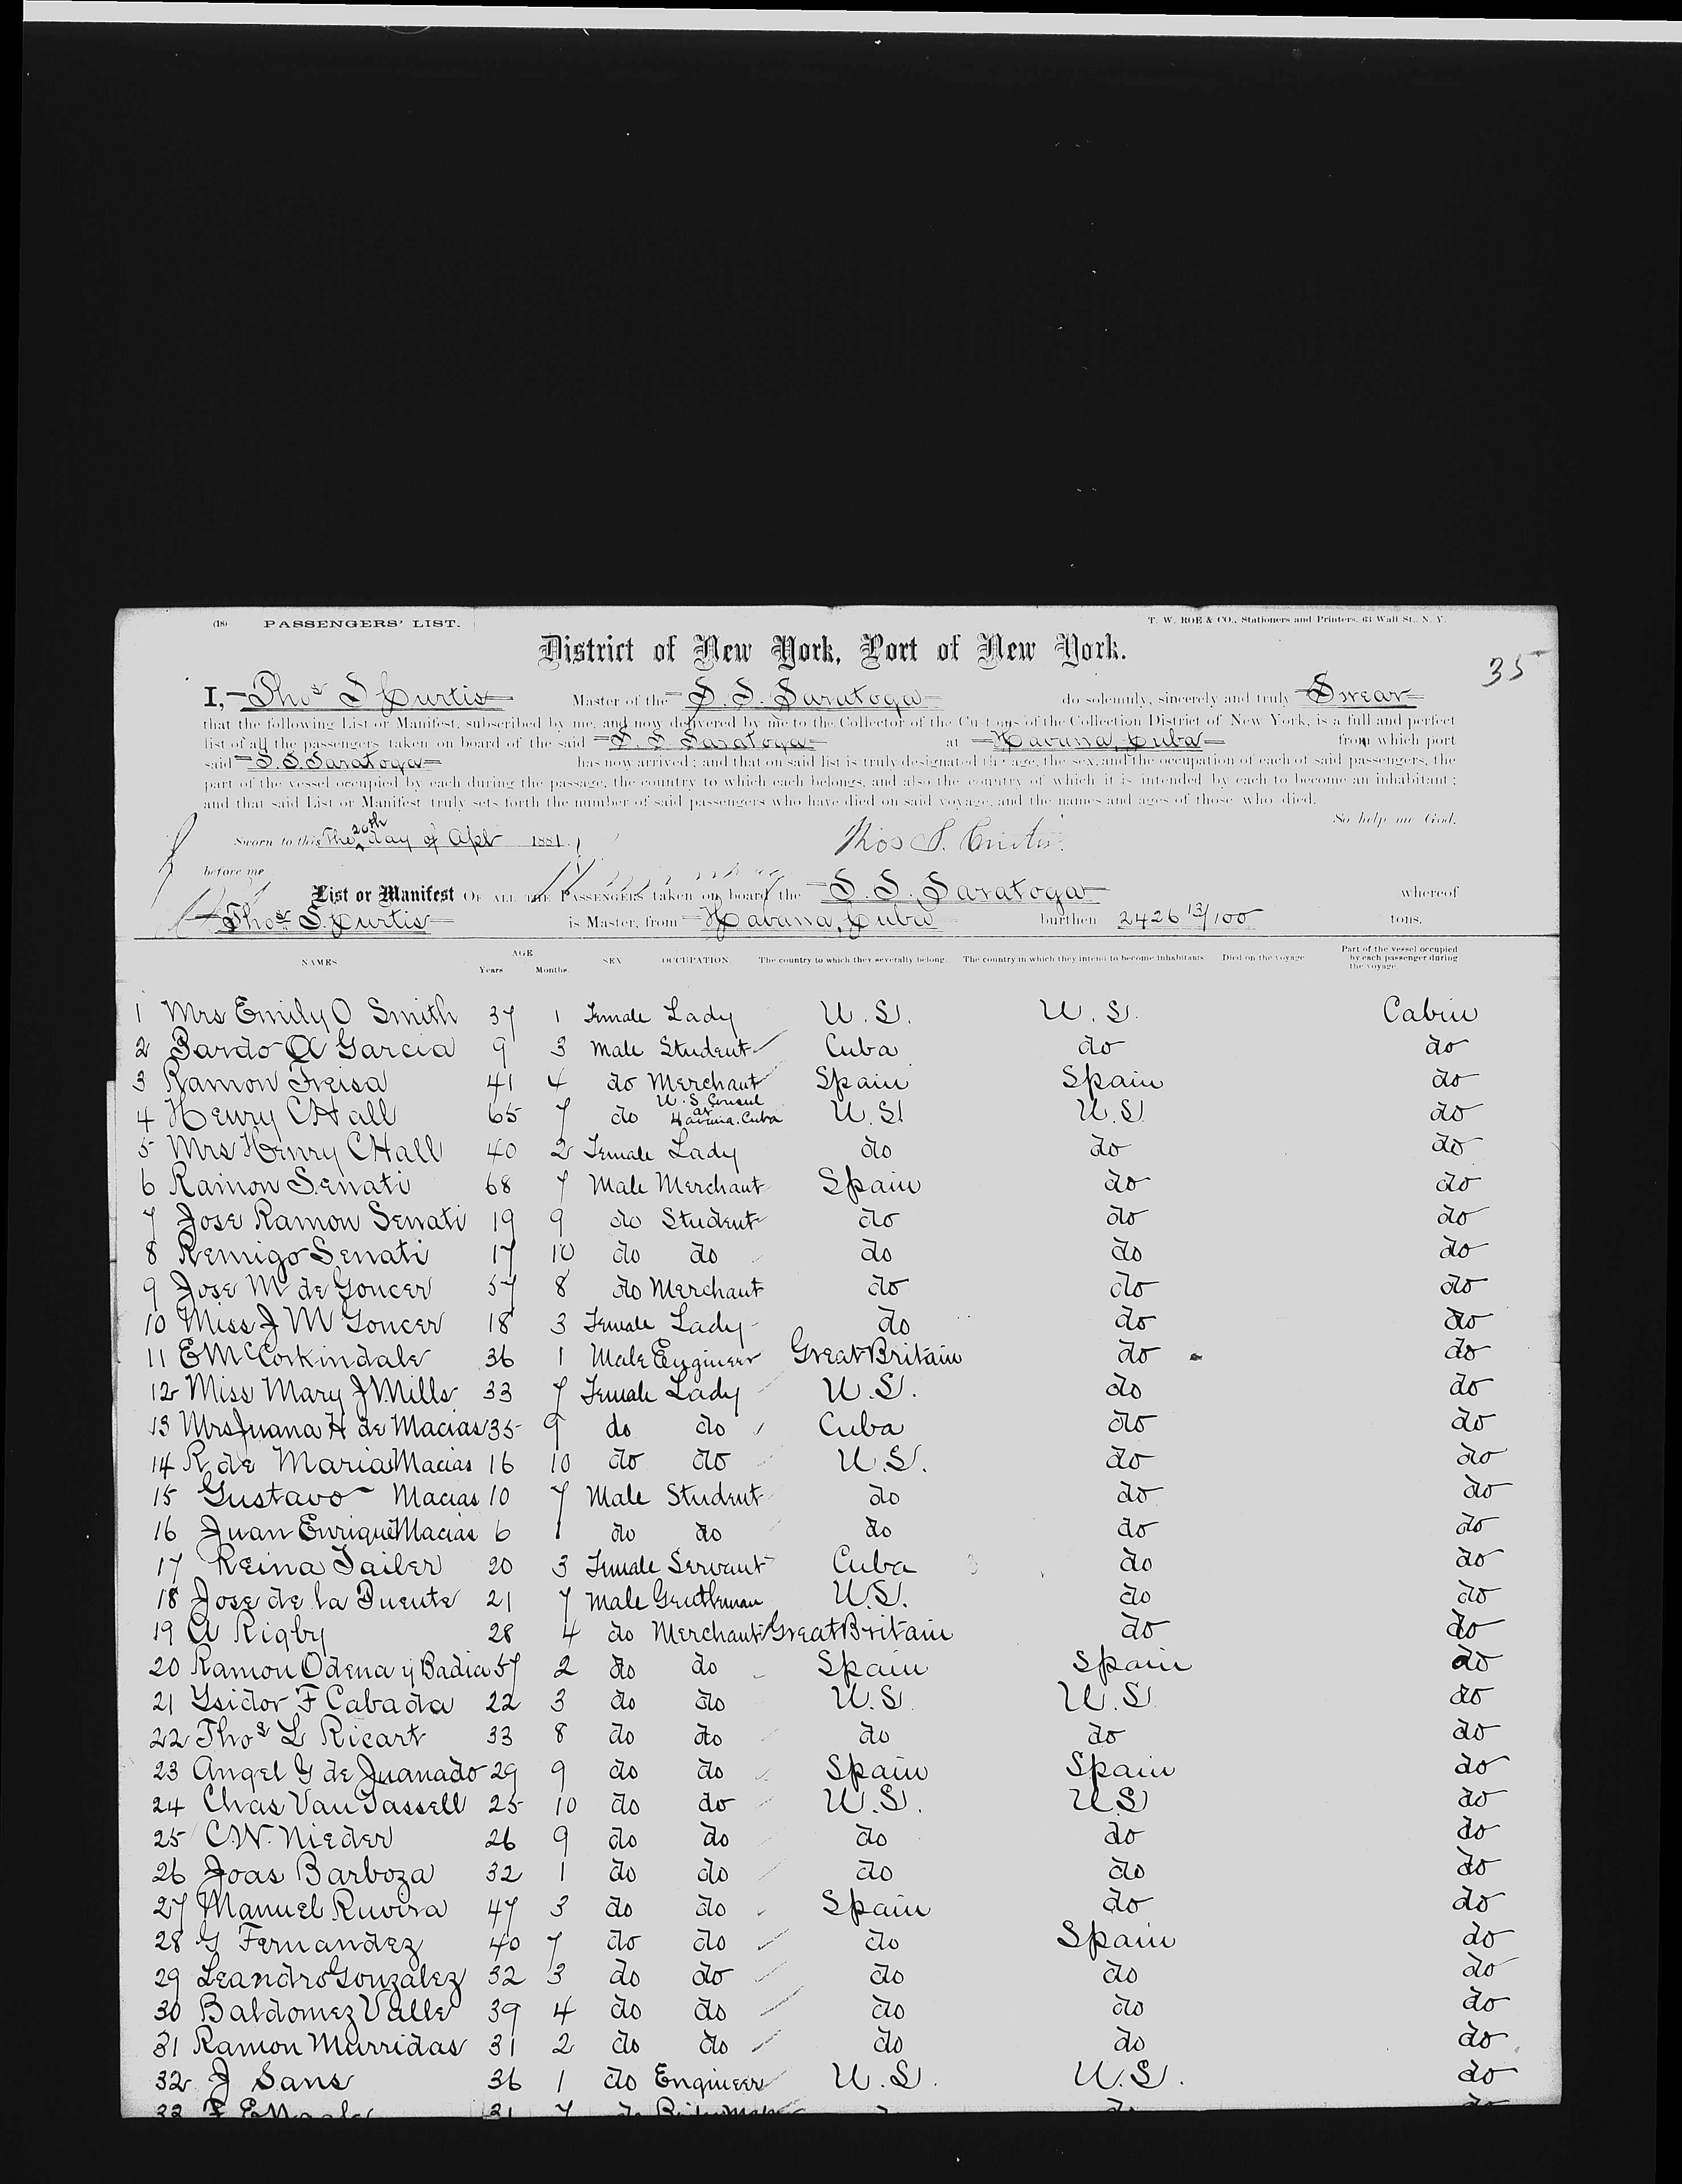 (18) PASSENGERS' LIST. T. W. ROE & CO., Stationers and Printers, 63 Wall St., N. Y.
District of New York, Port of New York.
35
I, Thos S Curtis Master of the S. S. Saratoga do solemnly, sincerely and truly Swear
that the following List or Manifest, subscribed by me, and now delivered by me to the Collector of the Customs of the Collection District of New York, is a full and perfect
list of all the passengers taken on board of the said S. S Saratoga at Havana, Cuba from which port
said S. S. Saratoga has now arrived; and that on said list is truly designated the age, the sex, and the occupation of each of said passengers, the
part of the vessel occupied by each during the passage, the country to which each belongs, and also the country of which it is intended by each to become an inhabitant;
and that said List or Manifest truly sets forth the number of said passengers who have died on said voyage, and the names and ages of those who died.
So help me God.
Sworn to this The 20th day of Apl 1881 Thos S. Curtis
before me
List or Manifest OF ALL THE PASSENGERS taken on board the S. S. Saratoga whereof
Thos S. Curtis is Master, from Havana, Cuba burthen 2426 13/100 tons.
NAMES AGE Years Months SEX OCCUPATION The country to which they severally belong. The country in which they intend to become inhabitants Died on the voyage Part of the vessel occupied by each passenger during the voyage.
1 Mrs Emily O Smith 37 1 Female Lady U. S. U. S. Cabin
2 Pardo A Garcia 9 3 Male Student Cuba do do
3 Ramon Freisa 41 4 do Merchant Spain Spain do
4 Henry C Hall 65 7 do U. S. Consul at Havana. Cuba U. S. U. S. do
5 Mrs Henry C Hall 40 2 Female Lady do do do
6 Ramon Senati 68 7 Male Merchant Spain do do
7 Jose Ramon Senati 19 9 do Student do do do
8 Remigo Senati 17 10 do do do do do
9 Jose M de Goncer 57 8 do Merchant do do do
10 Miss J M Goncer 18 3 Female Lady do do do
11 E McCorkindale 36 1 Male Engineer Great Britain do do
12 Miss Mary J Mills 33 7 Female Lady U. S. do do
13 Mrs Juana H de Macias 35 9 do do Cuba do do
14 R de Maria Macias 16 10 do do U. S. do do
15 Gustavo Macias 10 7 Male Student do do do
16 Juan Enrique Macias 6 1 do do do do do
17 Reina Tailer 20 3 Female Servant Cuba do do
18 Jose de la Puente 21 7 Male Gentleman U. S. do do
19 A Rigby 28 4 do Merchant Great Britain do do
20 Ramon Odena y Badia 57 2 do do Spain Spain do
21 Ysidor F Cabada 22 3 do do U. S. U. S. do
22 Thos L Ricart 33 8 do do do do do
23 Angel G de Juanado 29 9 do do Spain Spain do
24 Chas Van Tassell 25 10 do do U. S. U S do
25 C. W. Nieder 26 9 do do do do do
26 Joas Barboza 32 1 do do do do do
27 Manuel Ruvira 47 3 do do Spain do do
28 G Fernandez 40 7 do do do Spain do
29 Leandro Gonzalez 32 3 do do do do do
30 Baldomez Valle 39 4 do do do do do
31 Ramon Murridas 31 2 do do do do do
32 J Sans 36 1 do Engineer U. S. U. S. do
33 31 7 do